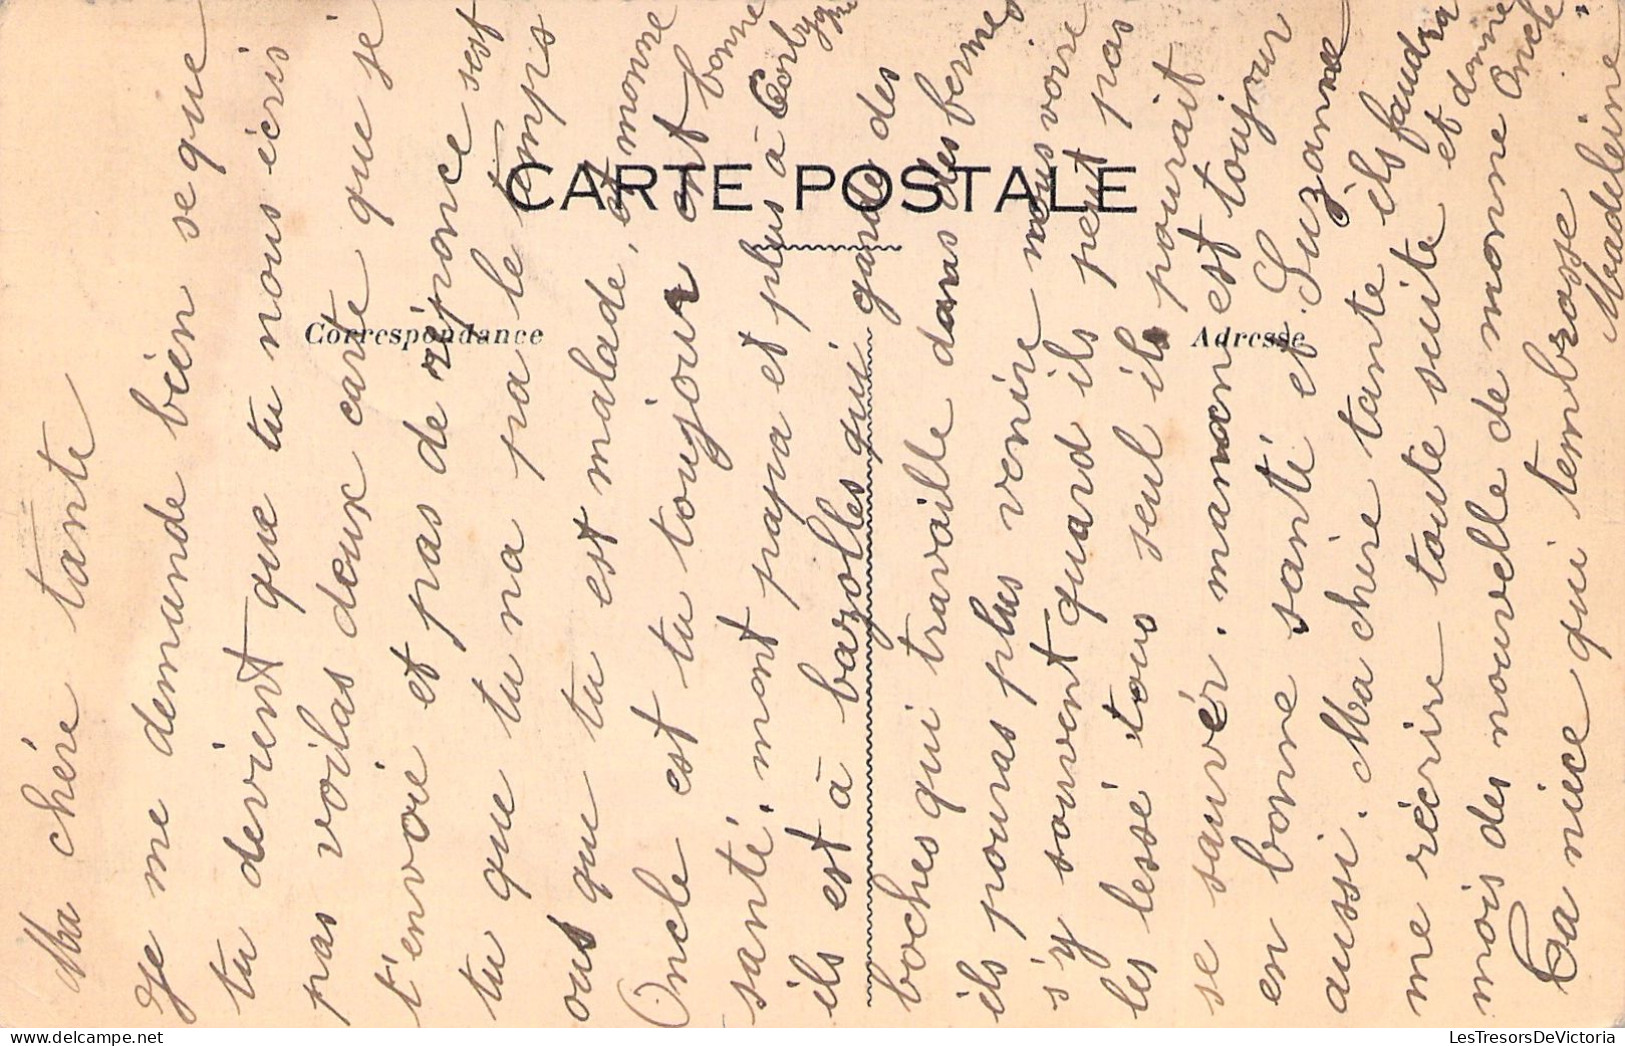 CARTE POSTALE
Correspondance
Adresse
Ma chére tante
Je me demande bien se que
tu devient que tu nous écris
pas voilas deux carte que je
t'envoie et pas de réponce sest
tu que tu na pa le temps
ous que tu est malade, et monne
Oncle est tu toujour ent bonne
santé. mont papa et plus à Corbigni
ils est à bazolles qui garde des
boches qui travaille dans des fermes
ils pouras plus venire nous voire
s'y souvent quard ils peut pas
les lessé tous seul ils pourait
se sauvér. maman est toujour
en bonne santé et Suzanne
aussi. Ma chère tante ils faudra
me récrire toute suite et donne
mois des nouvelle de monne Oncle.
Ta niece qui tembrasse
Madeleine
LesTresorsDeVictoria